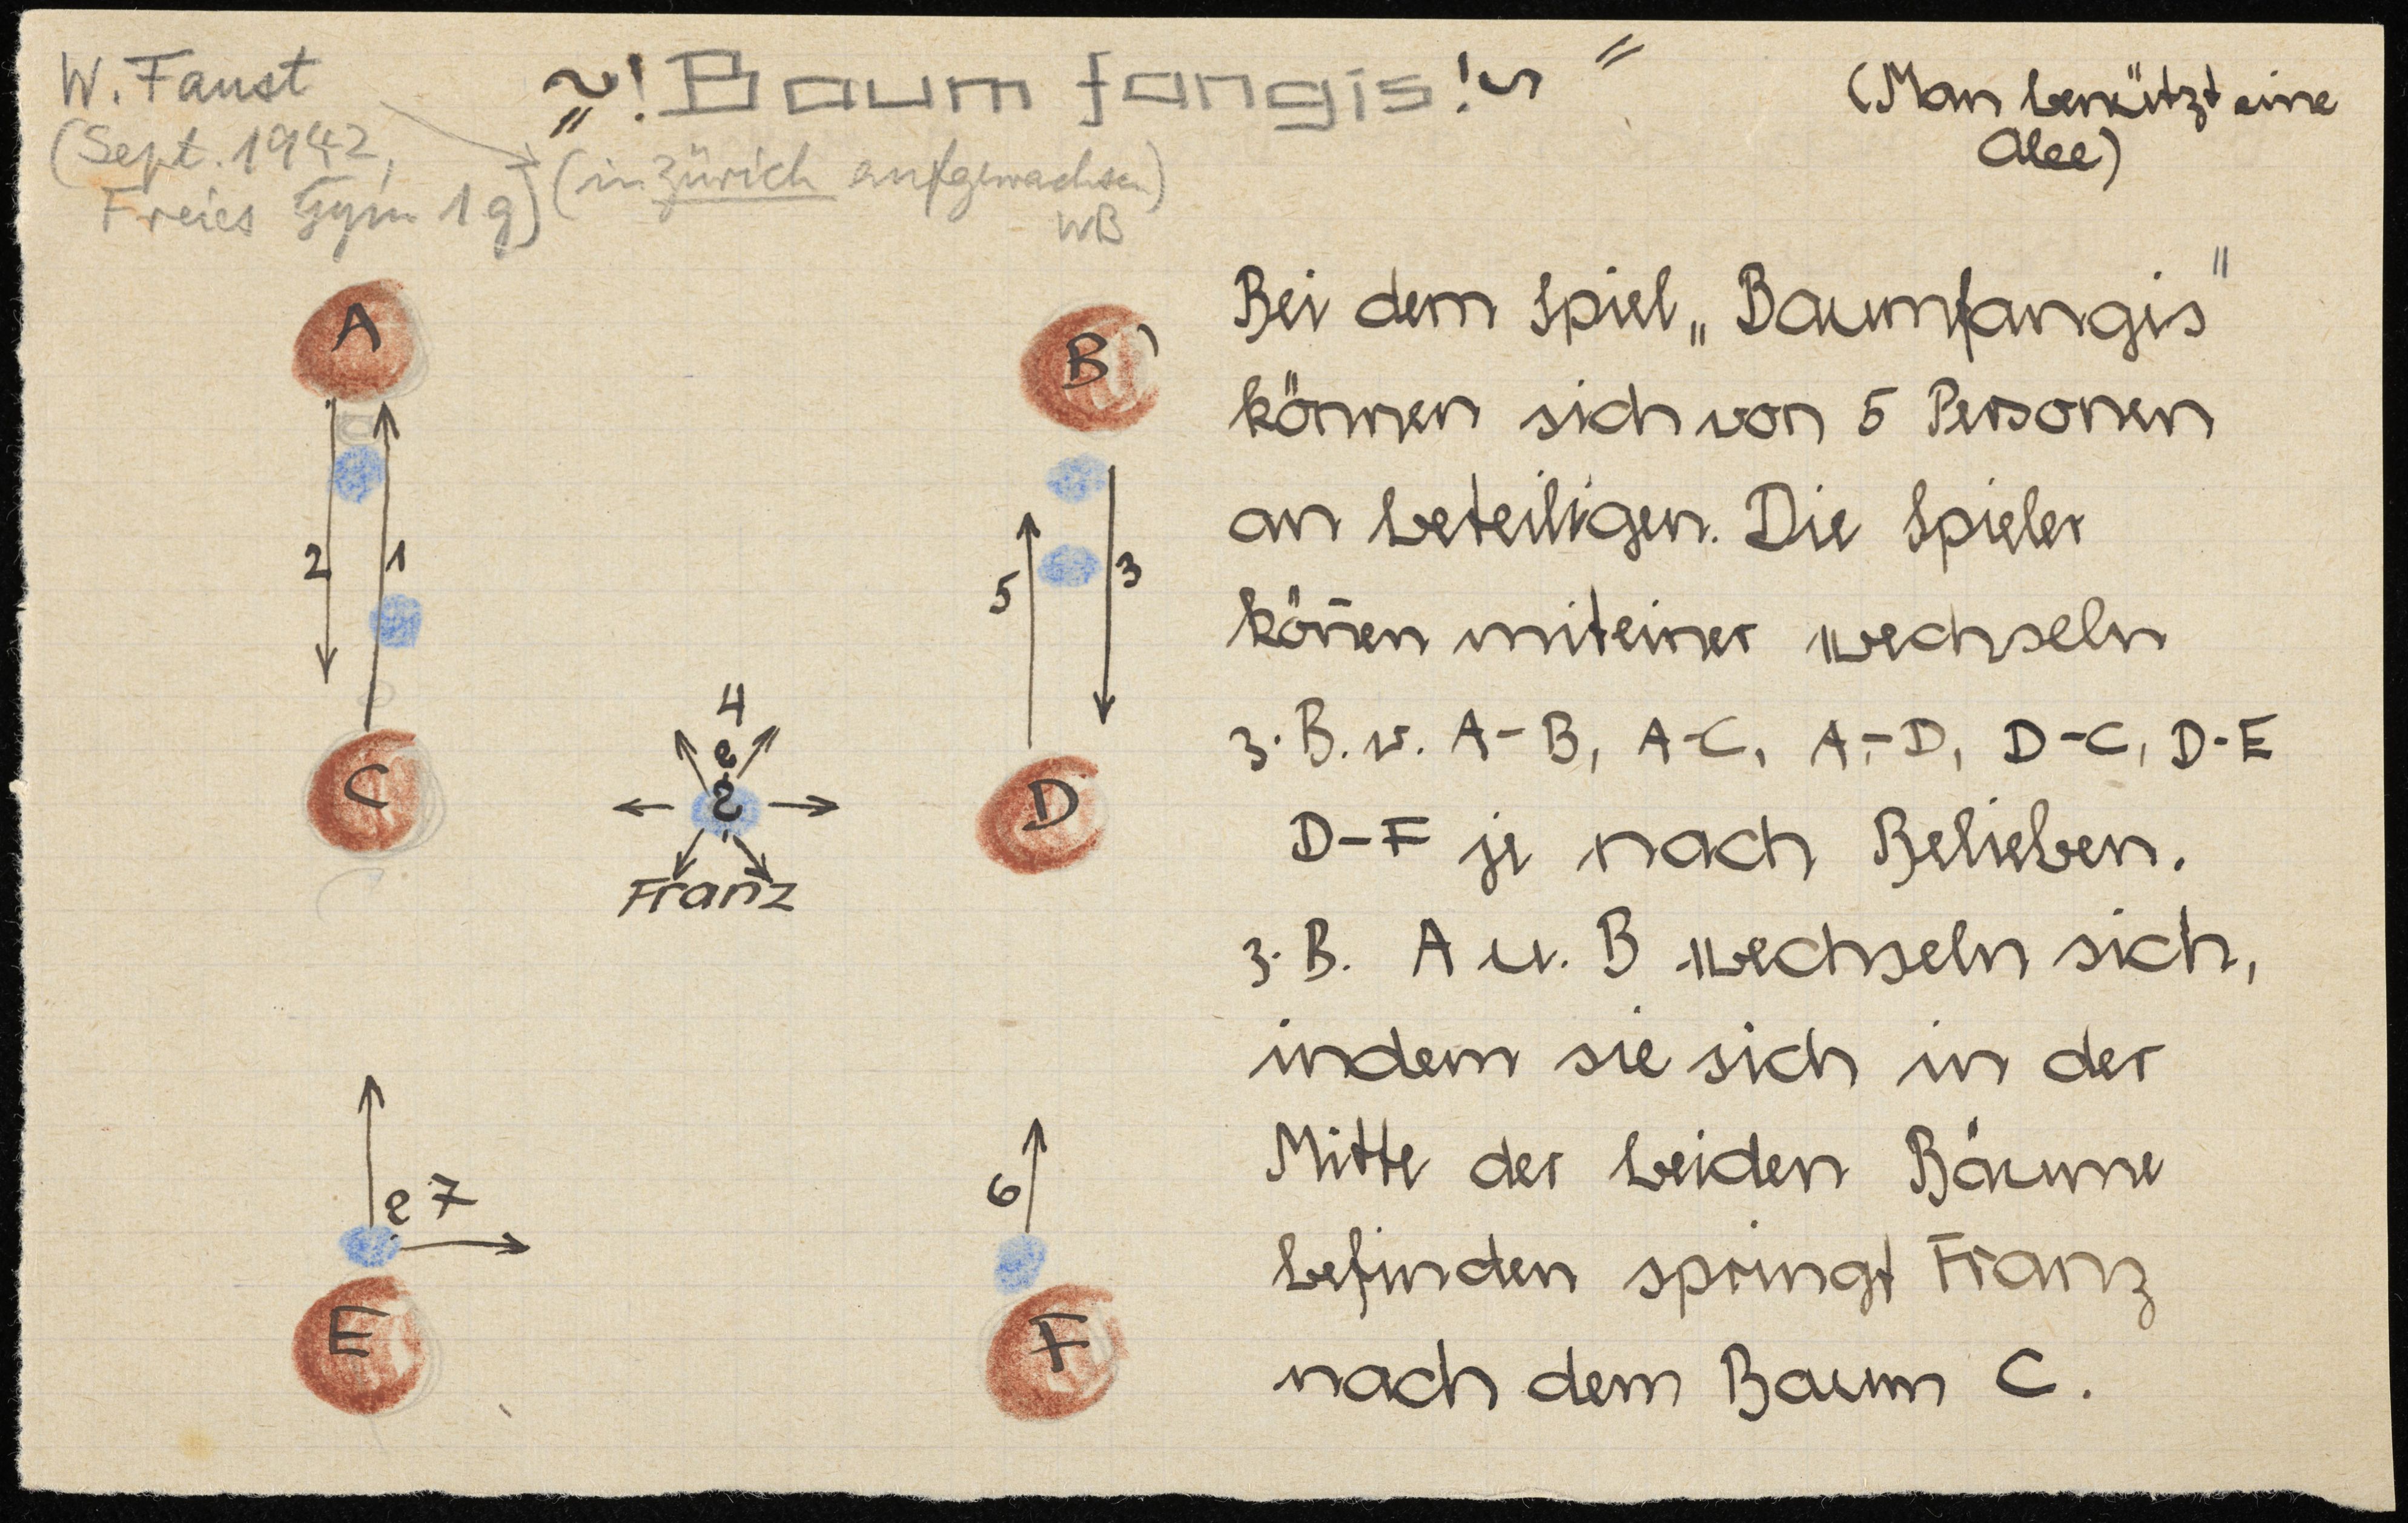 W. Faust
(Sept. 1942,
Freies Gym 1g)
„~! Baum fangis! ~"
(in Zürich aufgewachsen)
WB
(Man benützt eine
Alee)
A
B
2 1
5 3
C
4
Franz
D
7
6
E
F
Bei dem Spiel „Baumfangis"
können sich von 5 Personen
an beteiligen. Die Spieler
kön̄en miteiner wechseln
z. B. v. A-B, A-C, A-D, D-C, D-E
D-F je nach Belieben.
z. B. A u. B wechseln sich,
indem sie sich in der
Mitte der beiden Bäume
befinden springt Franz
nach dem Baum C.